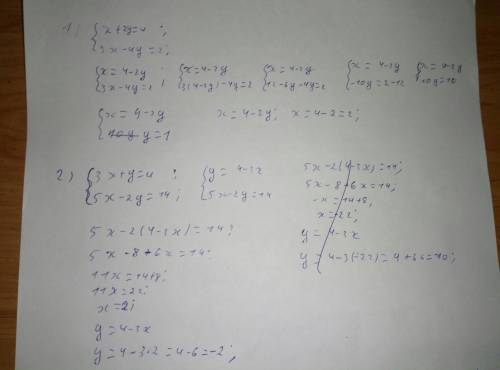 1) { x+2y=4 ;
{ 3x-4y=2;
{ x=4-2y { x=4-2y { x=4-2y { x=4-2y { x=4-2y
{ 3x-4y=2 ; { 3(4-2y)-4y=2 { 12-6y-4y=2 { -10y=2-12 { 10y=10
{ x=4-2y x=4-2y; x=4-2=2;
{ y=1
2) { 3x+y=4 ; { y=4-3x
{ 5x-2y=14; { 5x-2y=14
5x-2(4-3x)=14;
5x-8+6x=14;
11x=14+8;
11x=22;
x=2;
y=4-3x
y=4-3·2=4-6=-2;
5x-2(4-3x)=14;
5x-8-6x=14;
-x=14+8,
x=-22;
y=4-3x
y=4-3(-22)=4+66=70;